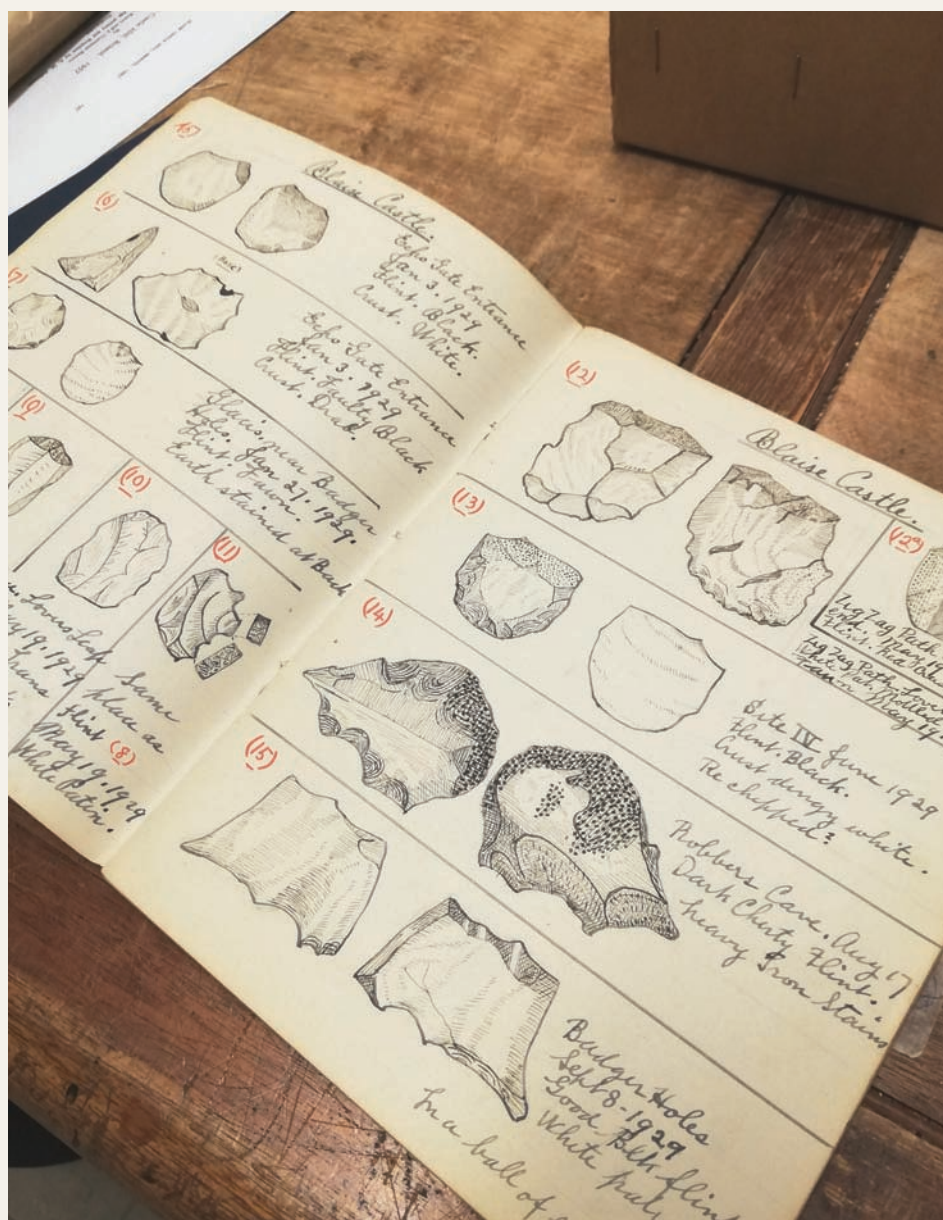 (5)
Blaise Castle.
Expo Gate Entrance
Jan 3. 1929
Flint. Black.
Crust. White.
(6)
(Hole)
Expo Gate Entrance
Jan 3. 1929
Flint. Faulty Black
Crust. Drab.
(7)
Glacis, near Badger
Holes. Jan 27. 1929.
Flint. Fawn.
Earth stained at Back
(9)
Lovers Leap
May 19. 1929
(10)
(11)
Same
place as
Flint (8)
May 19. 1929
White Patin.
(12)
Blaise Castle.
(12a)
Zig Zag Path
end. May 19
Flint. Red
Zig Zag Path, Lovers
Mottled
Fawn May 19
(13)
Site IV June 1929
Flint. Black.
Crust dingy white.
Re chipped?
(14)
Robbers Cave. Aug 17
Dark Cherty Flint.
heavy Iron Stains
(15)
Badger Holes
Sept 8. 1929
Good Blk flint
White
In a ball of